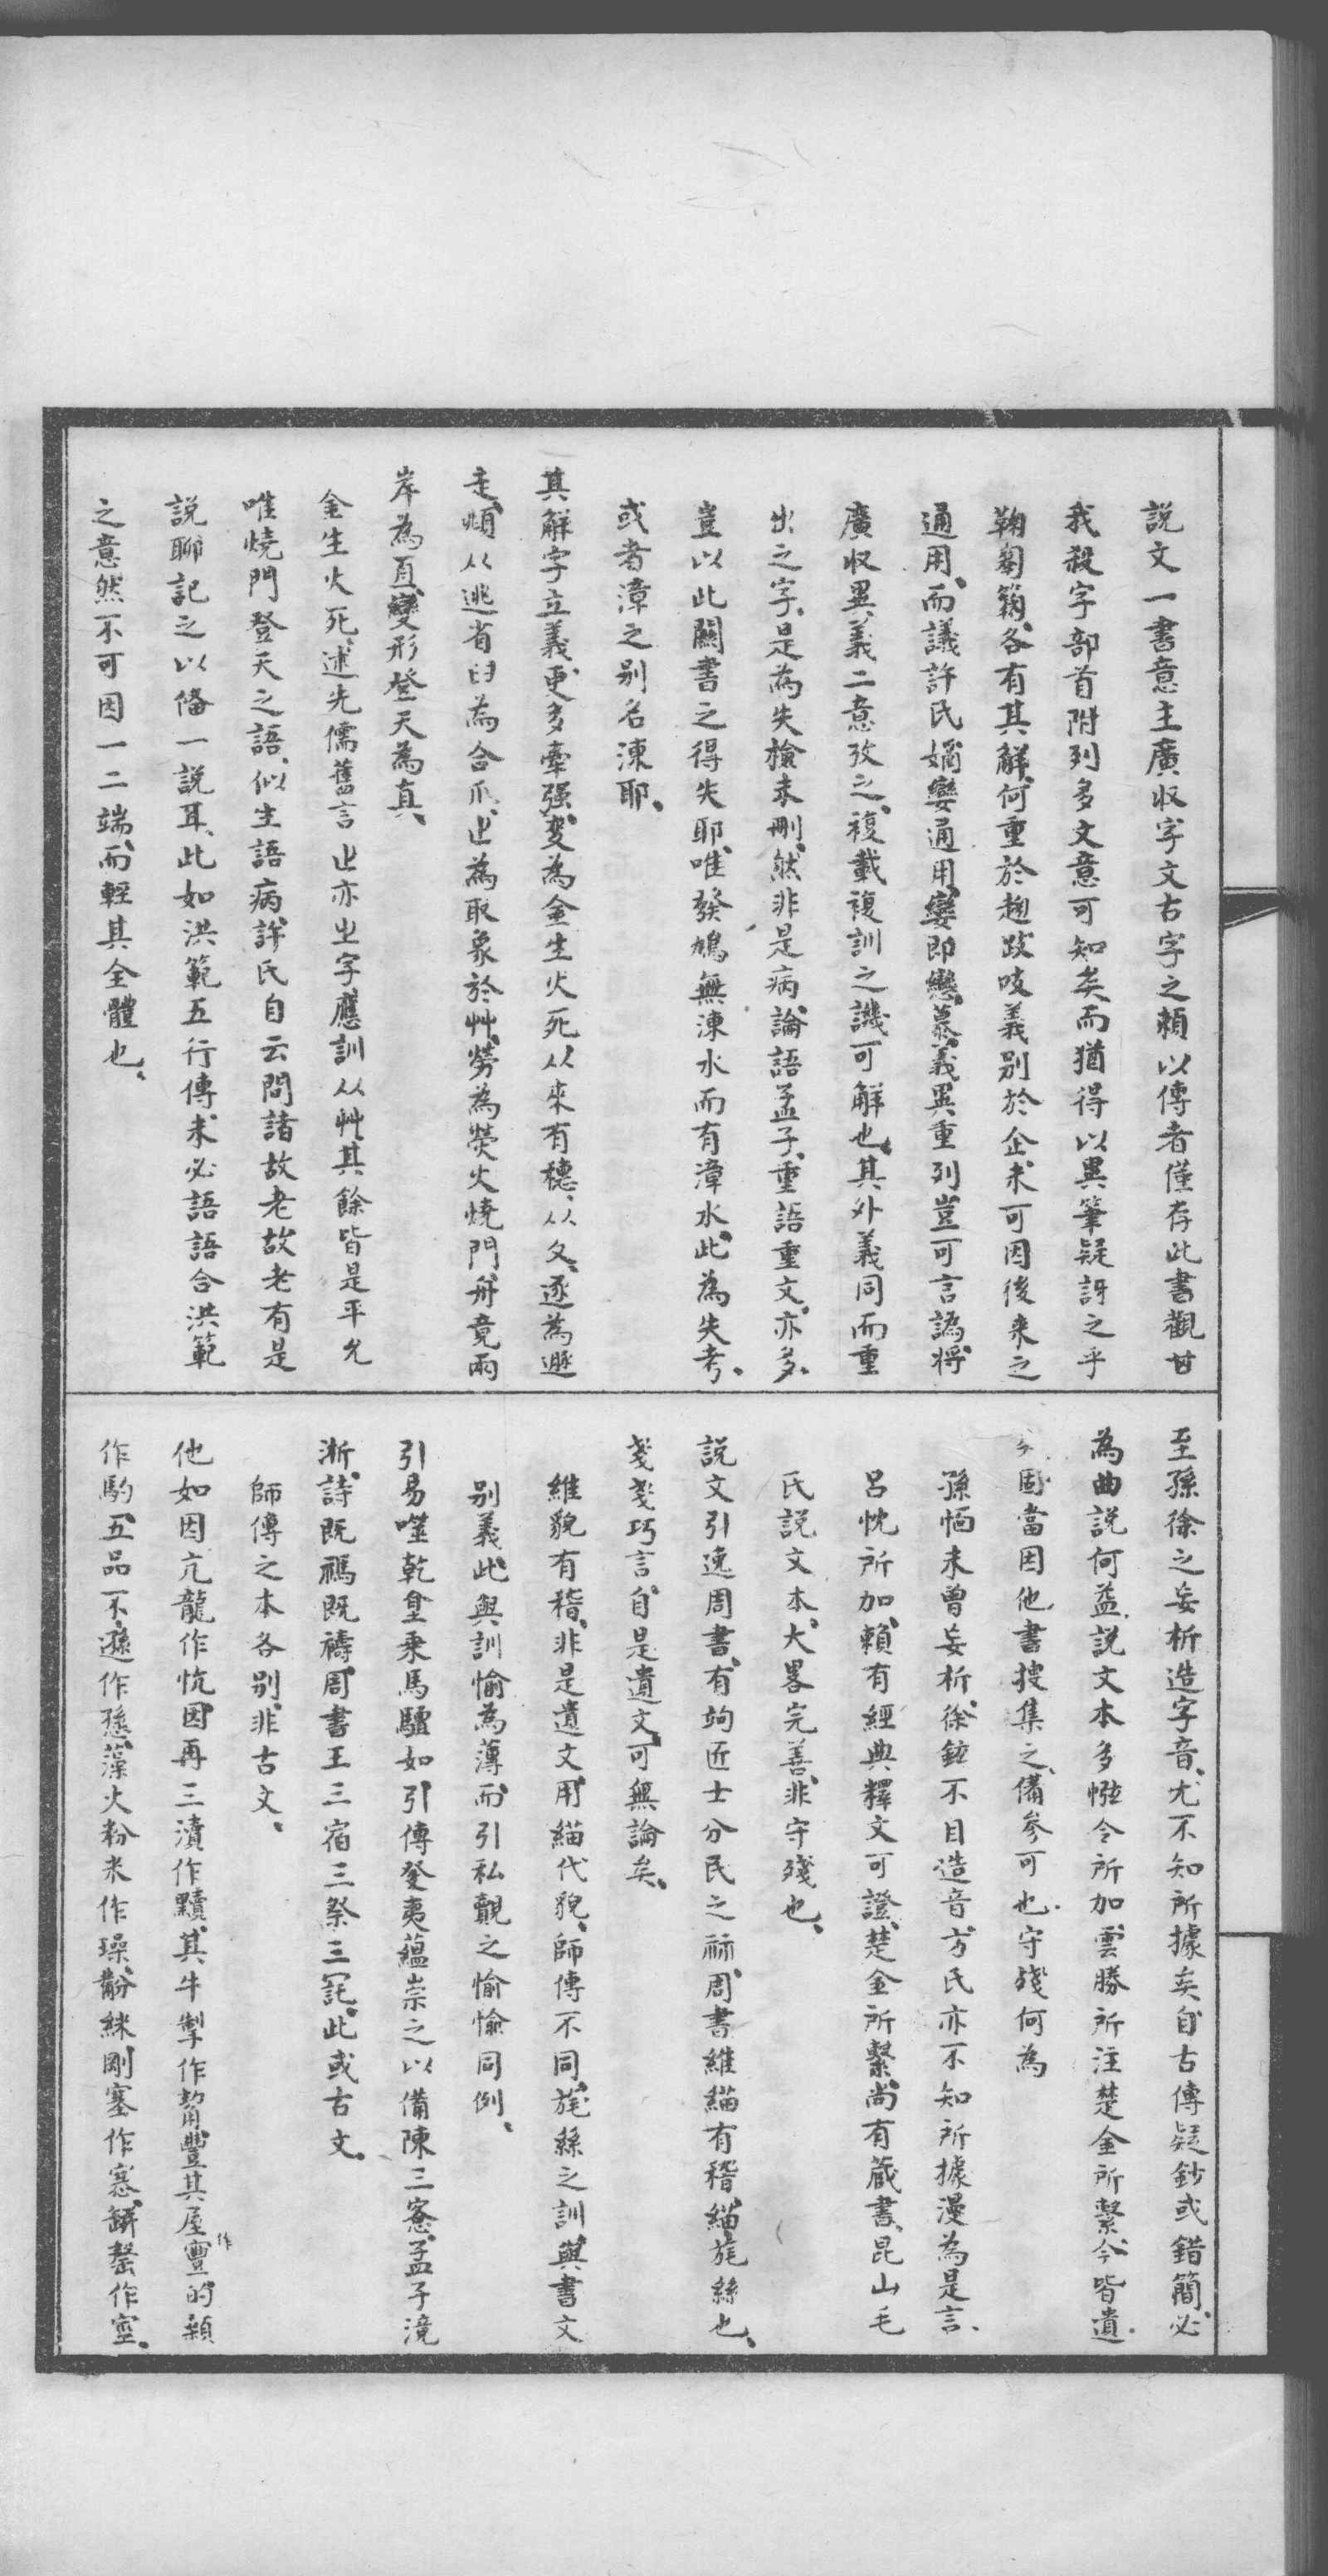 說文一書意主廣収字文古字之頼以傳者僅存此書觀甘
我殺字部首附列多文意可知矣而猶得以異筆疑訝之乎
鞠匊籟各有其解何重於趙跂吱義別於企未可因後来之
通用而議許氏嫺孌通用孌即戀慕義異重列豈可言譌將
廣収異義二意攷之複載複訓之譏可解也其外義同而重
出之字是為失檢未刪然非是病論語孟子重語重文亦多
豈以此關書之得失耶唯發鳩無涷水而有漳水此為失考
或者漳之别名涷耶
其解字立義更多牽强変為金生火死从來有穗从夂逐為遯
走頫从逃省臼為合爪㞢為取象於艸勞為熒火燒門舟竟兩
岸為亙變形登天為真
金生火死述先儒舊言㞢亦㞢字應訓从艸其餘皆是平允
唯燒門登天之語似生語病許氏自云問諸故老故老有是
說聊記之以備一說耳此如洪範五行傳未必語語合洪範
之意然不可因一二端而輕其全體也
至孫徐之妄析造字音尤不知所據矣自古傳疑鈔或錯簡必
為曲說何益說文本多愐令所加雲勝所注楚金所繫今皆遺
固當因他書搜集之備參可也守殘何為
孫愐未曾妄析徐鉉不目造音方氏亦不知所據漫為是言
呂忱所加頼有經典釋文可證楚金所繫尚有藏書昆山毛
氏說文本大畧完善非守殘也
說文引逸周書有竘匠士分民之祘周書維緢有稽緢旄絲也
戔戔巧言自是遺文可無論矣
維貌有稽非是遺文用緢代貌師傳不同旄絲之訓與書文
别義此與訓愉為薄而引私覿之愉愉同例
引易噬乾𡍮乘馬驙如引傳癹夷蘊崇之以備陳三愙孟子滰
淅詩既禡既禱周書王三宿三祭三詫此或古文
師傳之本各別非古文
他如因亢龍作忼因再三瀆作黷其牛掣作觢豐其屋作寷的顙
作馰五品不遜作愻藻火粉米作璪黺絲剛塞作𡫳缾罄作窒